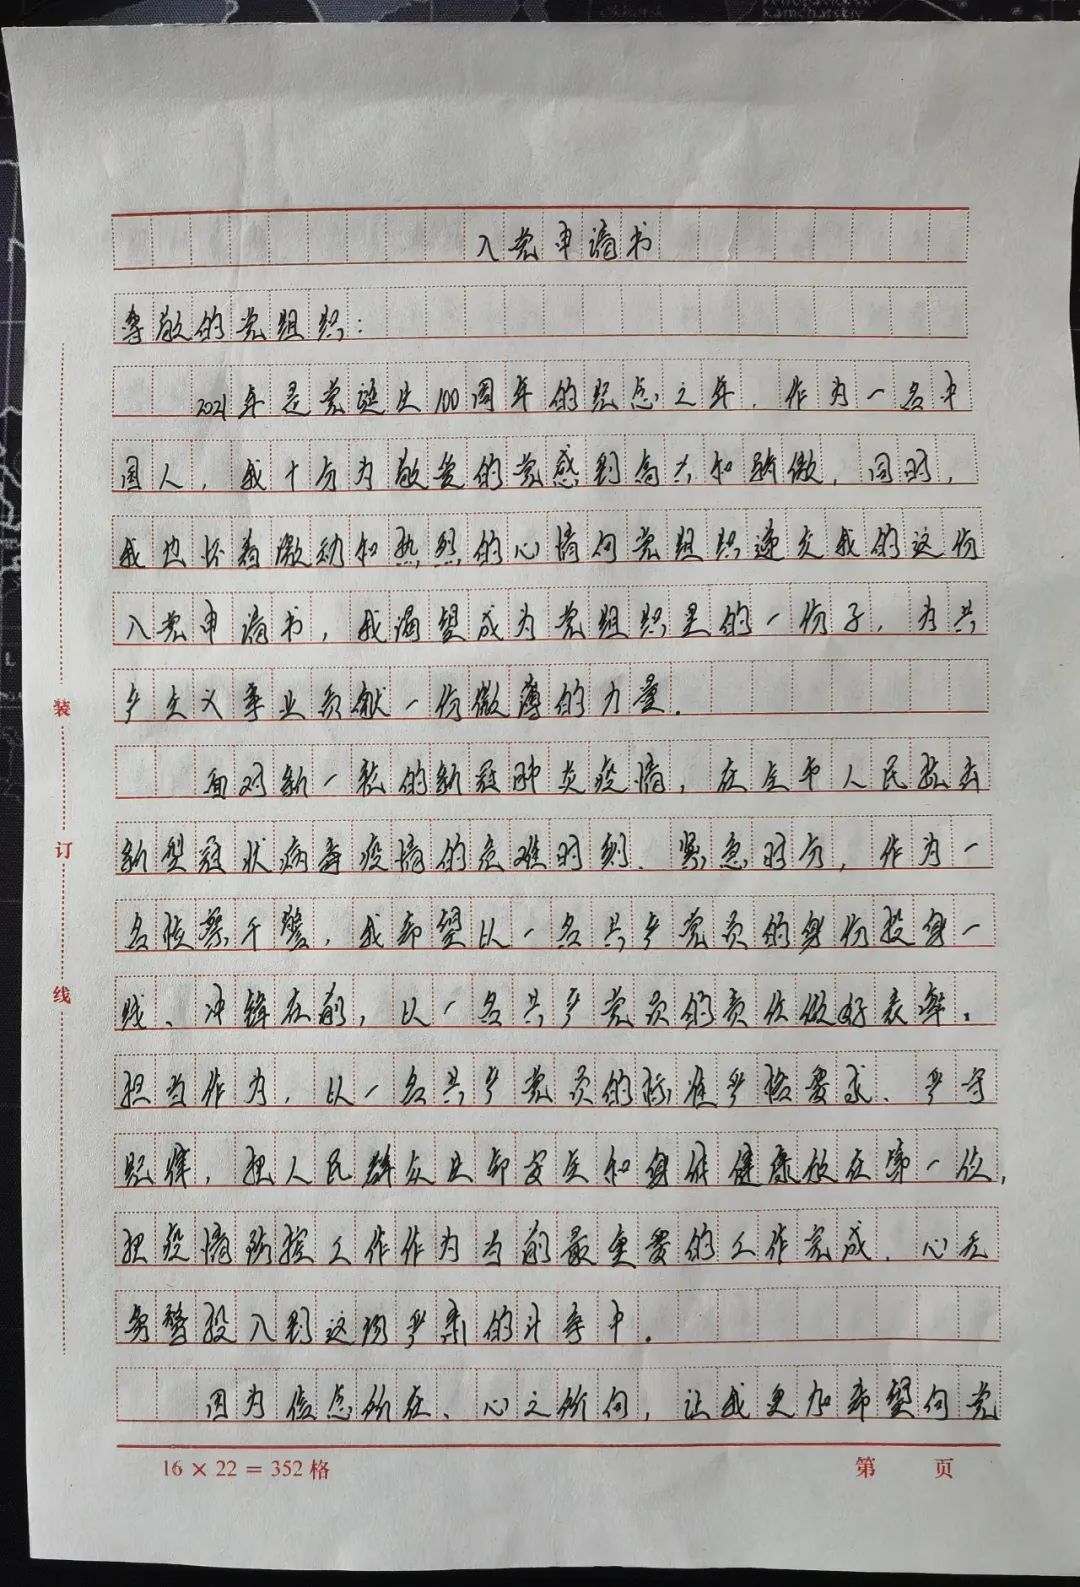 入党申请书
尊敬的党组织：
2021年是党诞生100周年的纪念之年，作为一名中
国人，我十分为敬爱的党感到高兴和骄傲，同时，
我也怀着激动和热烈的心情向党组织递交我的这份
入党申请书，我渴望成为党组织里的一份子，为共
产主义事业贡献一份微薄的力量。
面对新一轮的新冠肺炎疫情，在全市人民抗击
新型冠状病毒疫情的危难时刻、紧急时分，作为一
名检察干警，我希望以一名共产党员的身份投身一
线、冲锋在前，以一名共产党员的责任做好表率、
担当作为，以一名共产党员的标准严格要求、严守
纪律，把人民群众生命安全和身体健康放在第一位，
把疫情防控工作作为当前最重要的工作完成，心无
旁骛投入到这场严肃的斗争中。
因为信念所在、心之所向，让我更加希望向党
装
订
线
16 × 22 = 352 格
第 页